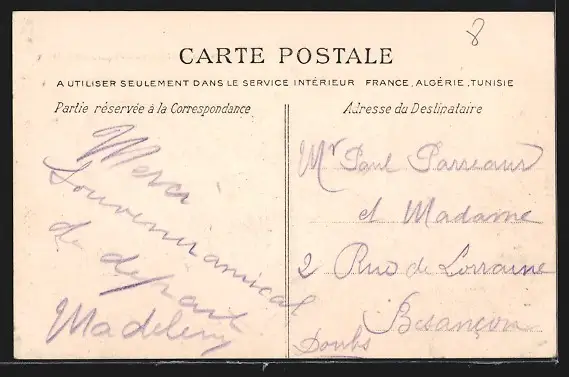 8
CARTE POSTALE
A UTILISER SEULEMENT DANS LE SERVICE INTÉRIEUR FRANCE, ALGÉRIE, TUNISIE
Partie réservée à la Correspondance
Adresse du Destinataire
Merci
Souvenir amical
de départ
Madeleine
Mr Paul Parreaux
et Madame
2 Rue de Lorraine
Besançon
Doubs